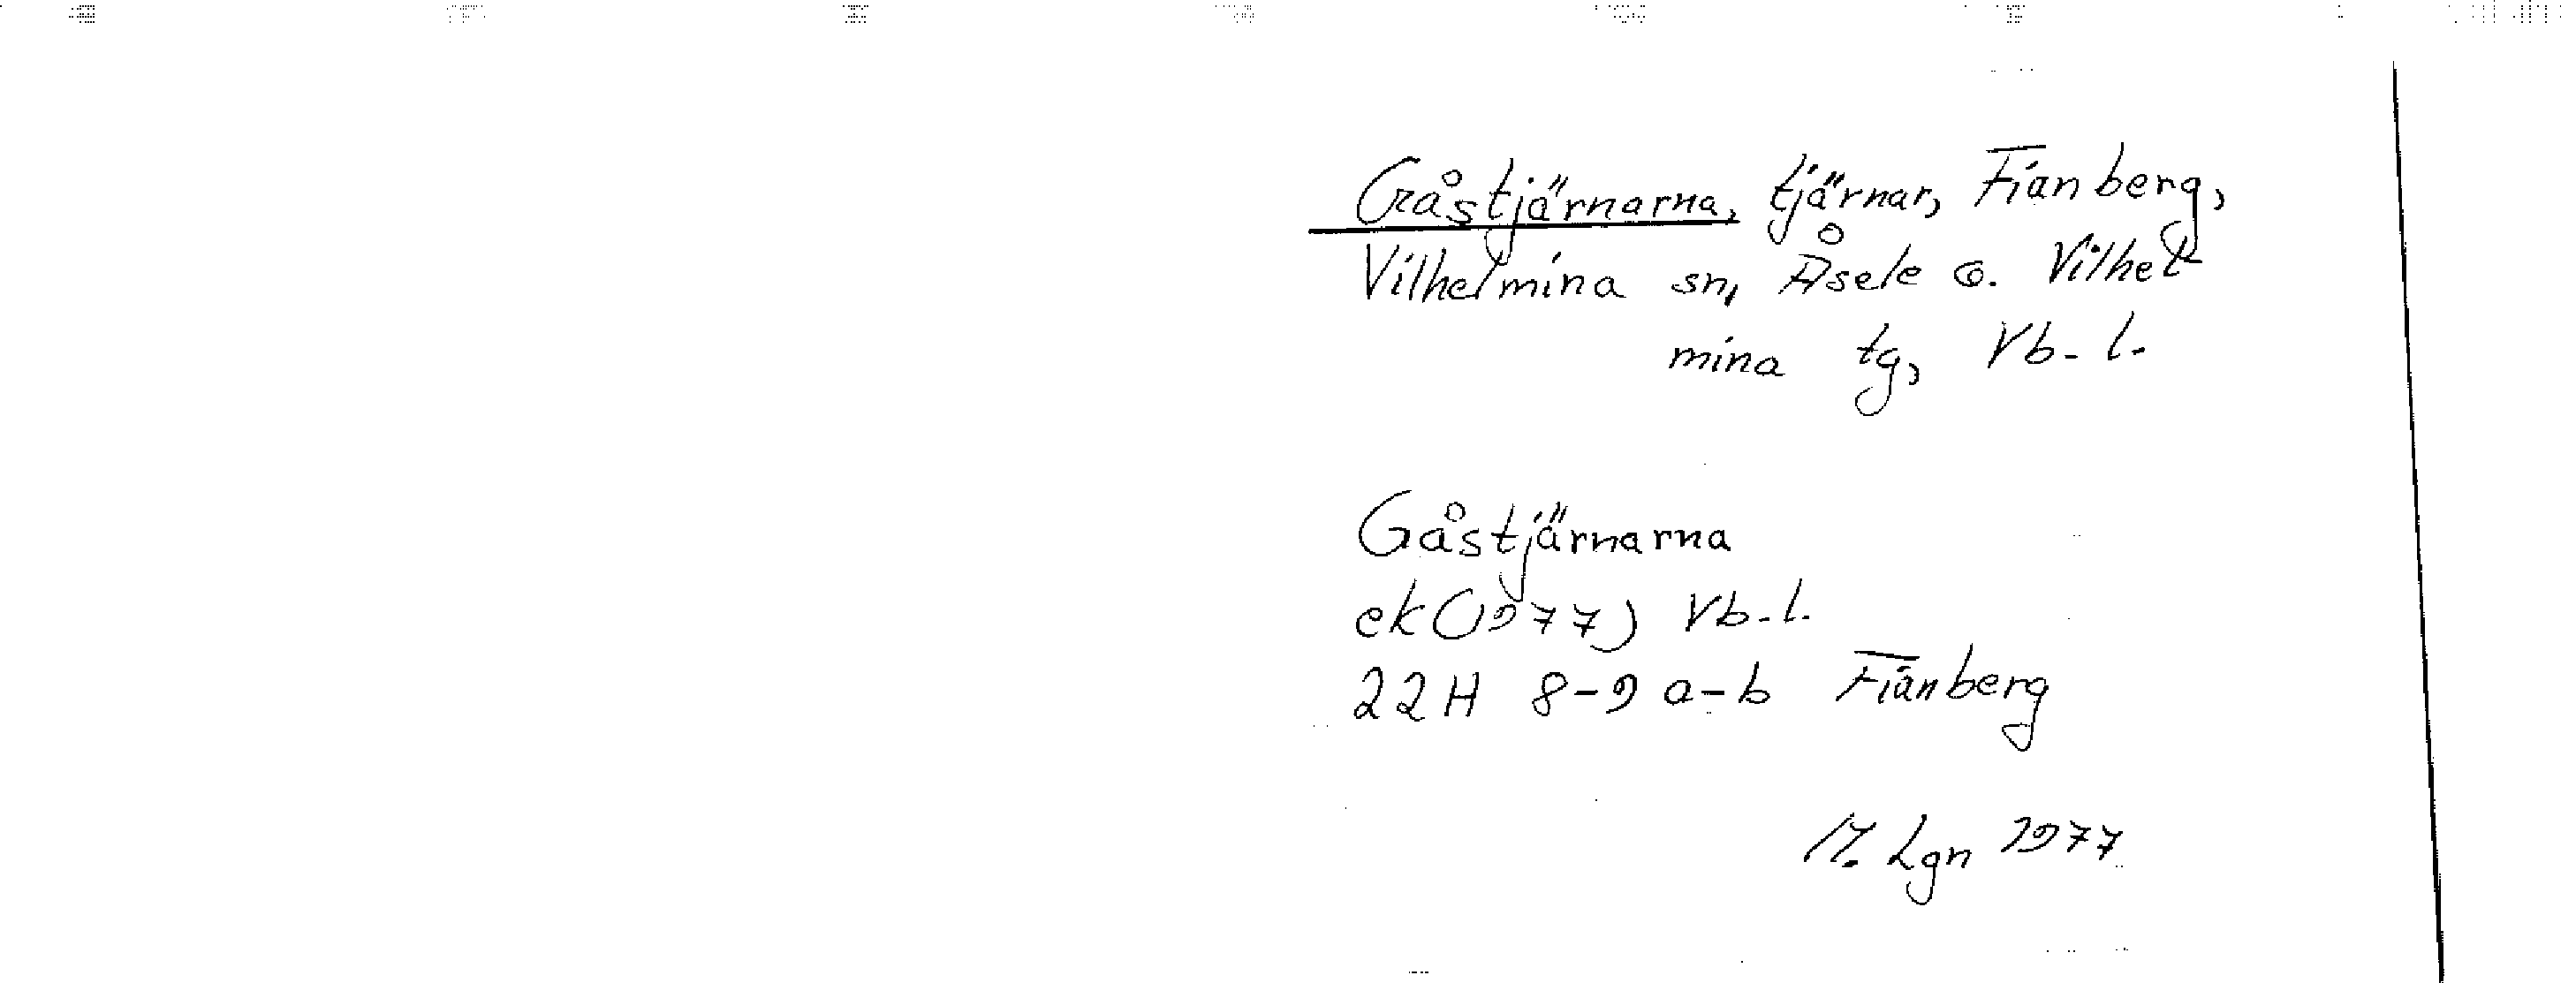 Gåstjärnarna, tjärnar, Fianberg,
Vilhelmina sn, Åsele o. Vilhel-
mina tg, Vb-l.
Gåstjärnarna
ek (1977) Vb-l.
22H 8-9 a-b Fianberg
M. Lgn 1977